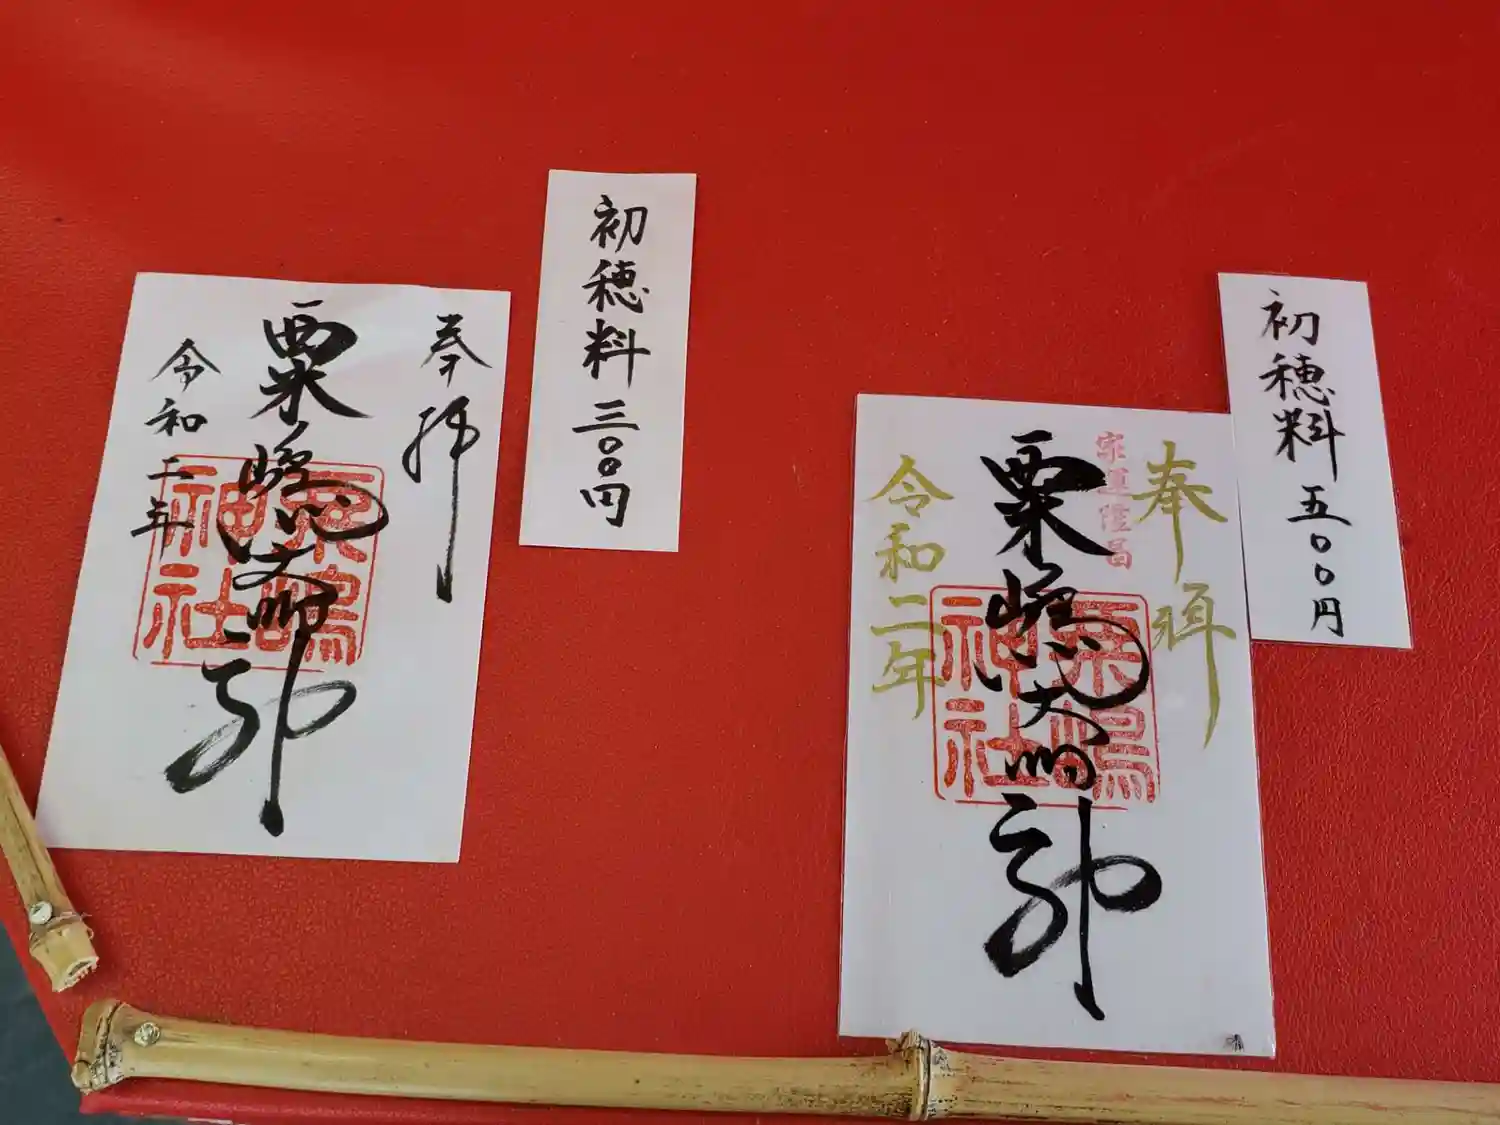 奉拝
粟嶋大明神
令和二年
粟嶋
神社
初穂料 三〇〇円
奉拝
家運隆昌
粟嶋大明神
令和二年
粟嶋
神社
初穂料 五〇〇円